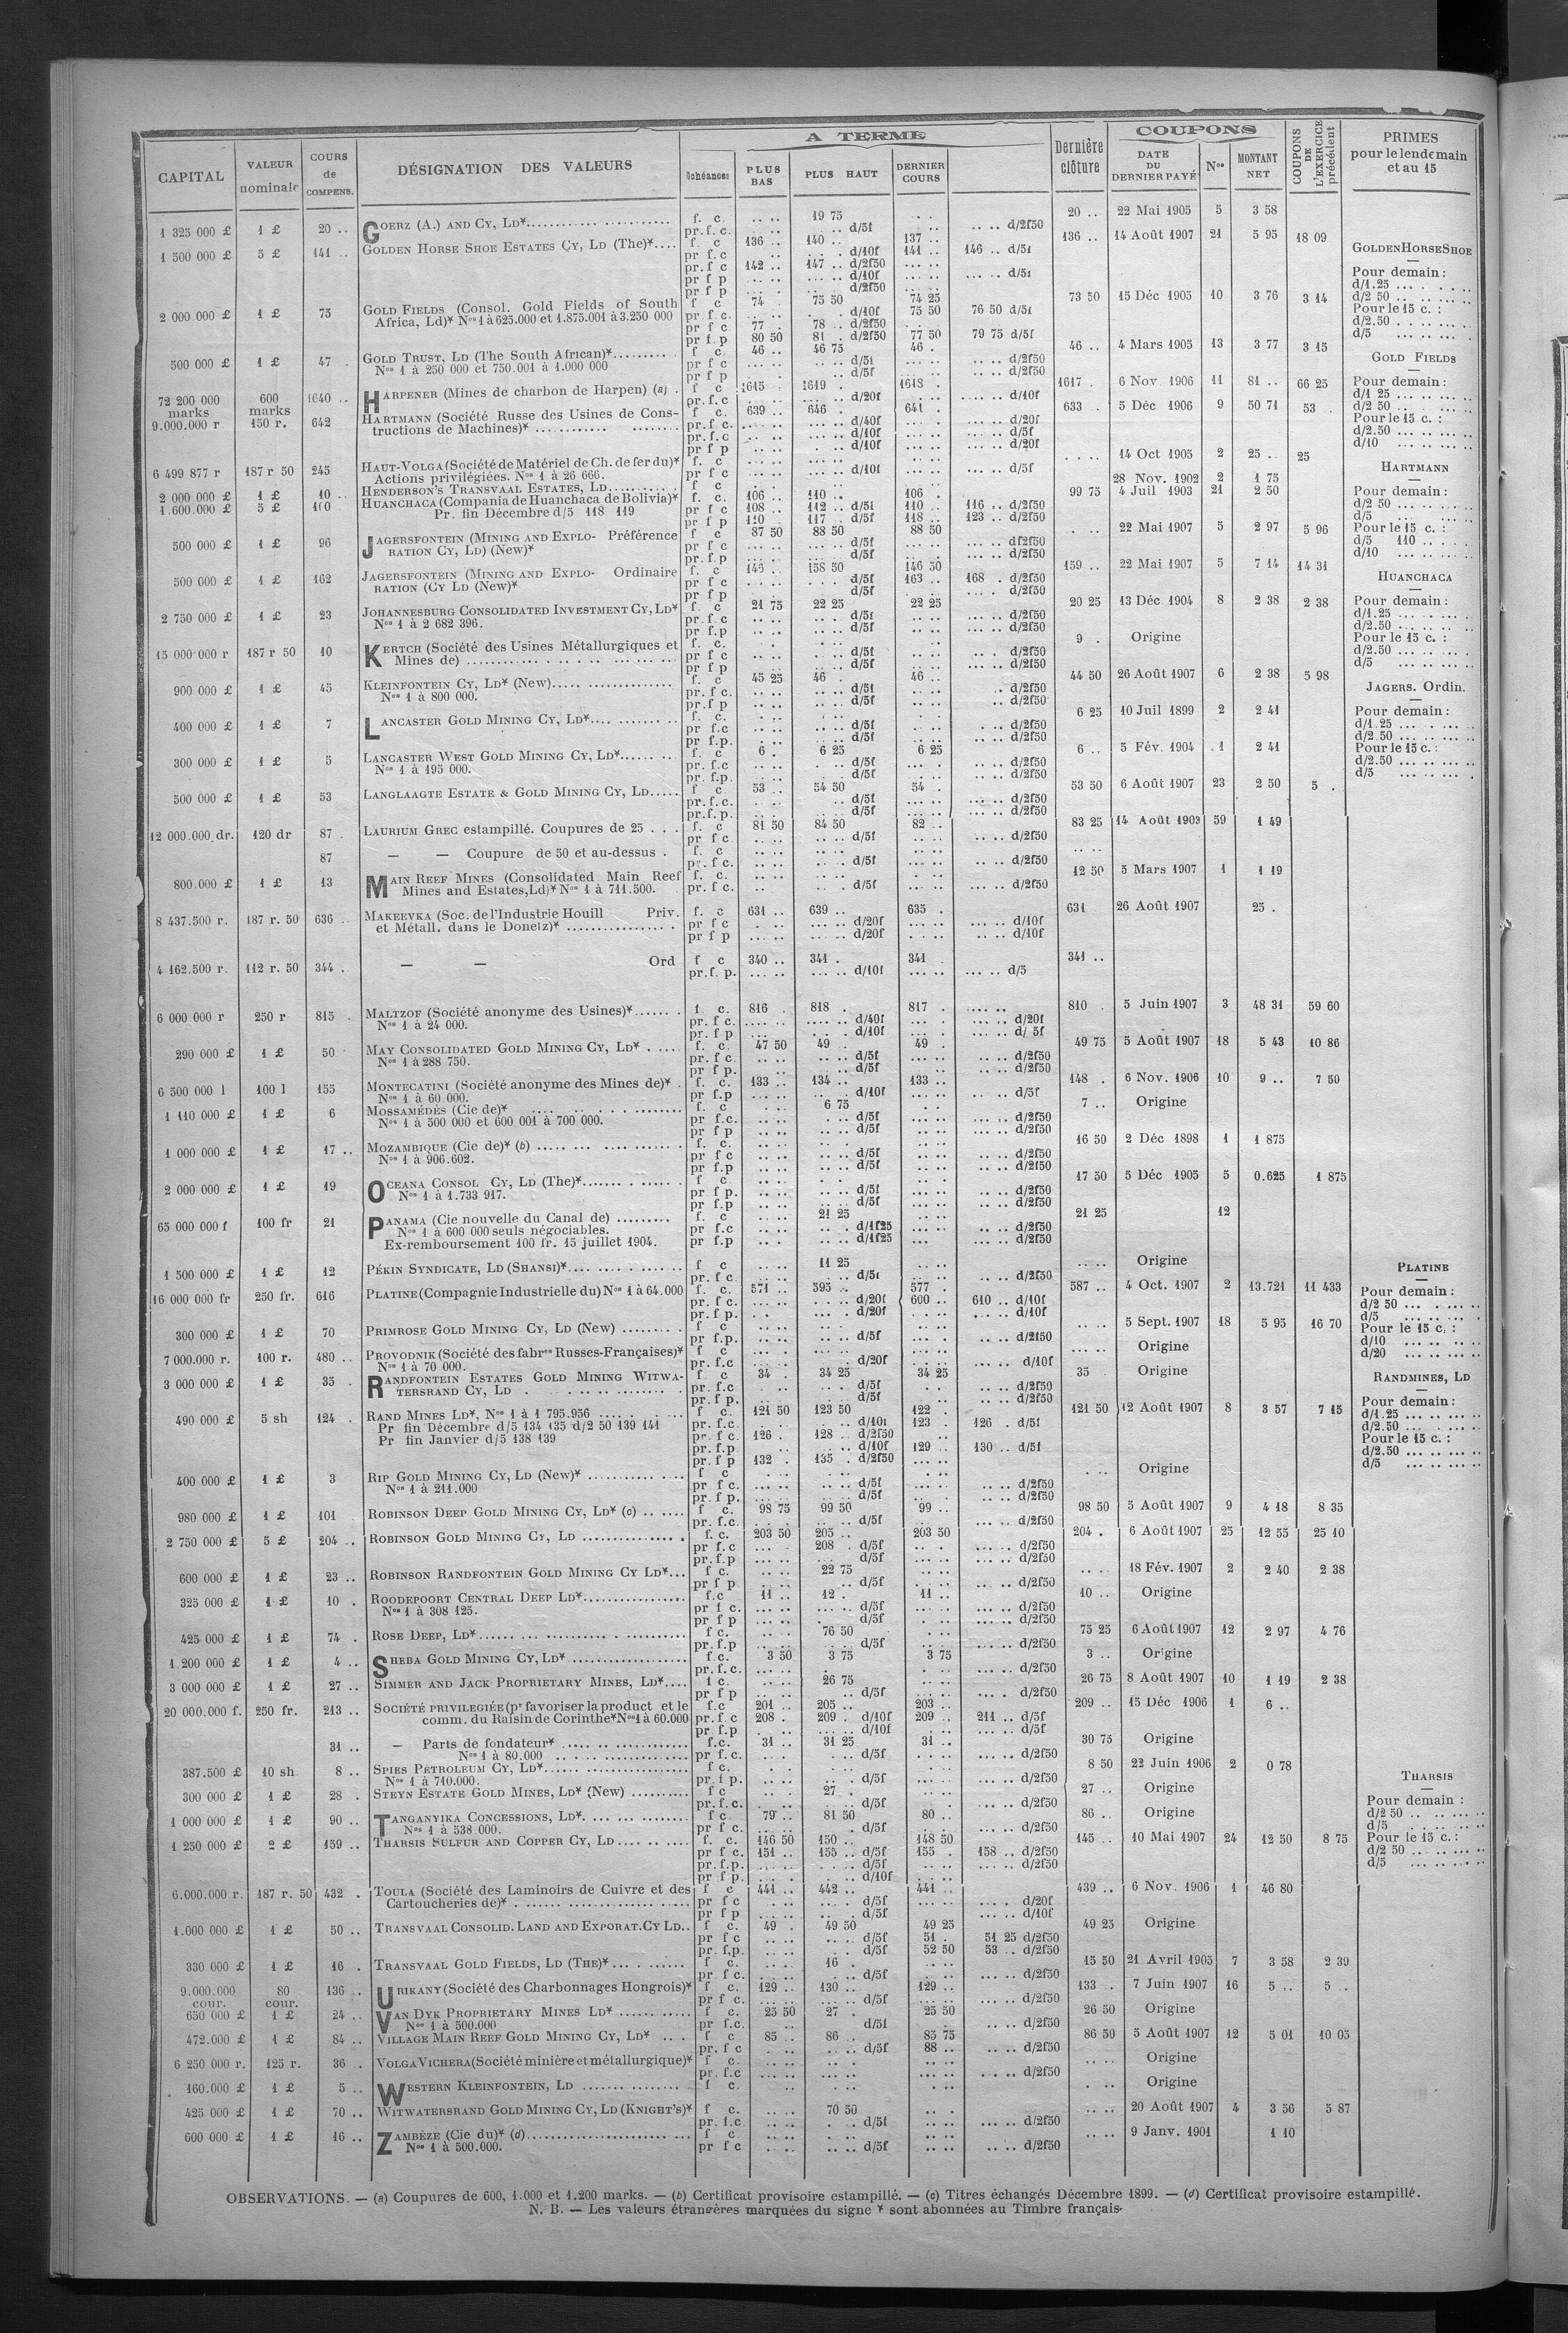 A TERME
COUPONS
CAPITAL VALEUR nominale COURS de COMPENS. DÉSIGNATION DES VALEURS Échéances PLUS BAS PLUS HAUT DERNIER COURS Dernière clôture DATE DU DERNIER PAYÉ Nos MONTANT NET COUPONS DE L'EXERCICE précédent PRIMES pour le lendemain et au 15
1 325 000 £ 1 £ 20 .. GOERZ (A.) AND CY, LD* f. c. 19 75 20 .. 22 Mai 1905 5 3 58
pr. f. c. d/5f d/2f50
1 500 000 £ 5 £ 141 .. GOLDEN HORSE SHOE ESTATES CY, LD (The)* f c 136 .. 140 .. 137 .. 136 .. 14 Août 1907 21 5 95 18 09
pr f. c d/10f 141 .. 146 .. d/5f
pr. f c 142 .. 147 .. d/2f50
pr f p d/10f d/5f
pr f p d/2f50
2 000.000 £ 1 £ 75 GOLD FIELDS (Consol. Gold Fields of South f c 74 . 75 50 74 25 73 50 15 Déc 1905 10 3 76 3 14
Africa, Ld)* Nos 1 à 625.000 et 1.875.001 à 3.250 000 pr. f c. d/10f 75 50 76 50 d/5f
pr f c 77 . 78 .. d/2f50
pr f. p 80 50 81 . d/2f50 77 50 79 75 d/5f
500 000 £ 1 £ 47 . GOLD TRUST, LD (The South African)* f c. 46 .. 46 75 46 . 46 .. 4 Mars 1905 13 3 77 3 15
Nos 1 à 250 000 et 750.001 à 1.000 000 pr f c d/5f d/2f50
pr f p d/5f d/2f50
72 200 000 marks 600 marks 1640 .. HARPENER (Mines de charbon de Harpen) (a) f c 1615 . 1619 . 1618 . 1617 . 6 Nov. 1906 11 81 .. 66 25
pr. f. c d/20f d/10f
9.000.000 r 150 r. 642 HARTMANN (Société Russe des Usines de Cons- f c. 639 .. 646 . 641 . 633 .. 5 Déc 1906 9 50 71 53 .
tructions de Machines)* pr. f c. d/40f d/20f
pr. f. c d/10f d/5f
pr f p d/10f d/20f
6 499 877 r 187 r 50 245 HAUT-VOLGA (Société de Matériel de Ch. de fer du)* f. c 14 Oct 1905 2 25 .. 25
Actions privilégiées. Nos 1 à 26 666. pr f c d/10f d/5f
2 000 000 £ 1 £ 10 .. HENDERSON'S TRANSVAAL ESTATES, LD f c 28 Nov. 1902 2 1 75
1.600.000 £ 5 £ HUANCHACA (Compania de Huanchaca de Bolivia)* f. c. 106 .. 110 .. 106 . 99 75 4 Juil 1903 21 2 50
Pr. fin Décembre d/5 118 119 pr f c 108 .. 112 .. d/5f 110 .. 116 .. d/2f50
pr f p 110 117 . d/5f 118 .. 123 .. d/2f50
500 000 £ 1 £ 96 JAGERSFONTEIN (MINING AND EXPLO- Préférence f c 87 50 88 50 88 50 22 Mai 1907 5 2 97 5 96
RATION CY, LD) (New)* pr f c d/5f d/2f50
pr. f. p d/5f d/2f50
500 000 £ 1 £ 162 JAGERSFONTEIN (MINING AND EXPLO- Ordinaire f. c 158 50 146 50 159 .. 22 Mai 1907 5 7 14 14 31
RATION (CY LD (New)* pr f c d/5f 163 .. 168 . d/2f50
pr f p d/5f d/2f50
2 750 000 £ 1 £ 23 JOHANNESBURG CONSOLIDATED INVESTMENT CY, LD* f. c 21 75 22 25 22 25 20 25 13 Déc. 1904 8 2 38 2 38
Nos 1 à 2 682 396. pr. f. c d/5f d/2f50
pr. f. p d/5f d/2f50
15 000 000 r 187 r 50 10 KERTCH (Société des Usines Métallurgiques et f. c. 9 . Origine
Mines de) pr f c d/5f d/2f50
pr f p d/5f d/2f50
900 000 £ 1 £ 45 KLEINFONTEIN CY, LD* (New) f. c 45 25 46 . 46 .. 44 50 26 Août 1907 6 2 38 5 98
Nos 1 à 800 000. pr. f c. d/5f d/2f50
pr. f p d/5f d/2f50
400 000 £ 1 £ 7 LANCASTER GOLD MINING CY, LD* f. c. 6 25 10 Juil 1899 2 2 41
pr f. c d/5f d/2f50
pr f. p. d/5f d/2f50
300 000 £ 1 £ 5 LANCASTER WEST GOLD MINING CY, LD* f. c 6 . 6 25 6 25 6 .. 5 Fév. 1904 1 2 41
Nos 1 à 195 000. pr. f. c d/5f d/2f50
pr. f. p. d/5f d/2f50
500 000 £ 1 £ 53 LANGLAAGTE ESTATE & GOLD MINING CY, LD f c 53 .. 54 50 54 . 53 50 6 Août 1907 23 2 50 5 .
pr. f. c. d/5f d/2f50
pr. f. p. d/5f d/2f50
12 000.000 dr. 120 dr 87 . LAURIUM GREC estampillé. Coupures de 25 f. c 81 50 84 50 82 .. 83 25 14 Août 1903 59 1 49
pr f c d/5f d/2f50
87 — — Coupure de 50 et au-dessus . f. c
pr. f c. d/5f d/2f50
800.000 £ 1 £ 13 MAIN REEF MINES (Consolidated Main Reef f. c. 12 50 5 Mars 1907 1 1 19
Mines and Estates, Ld)* Nos 1 à 711.500. pr. f c. d/5f d/2f50
8 437.500 r. 187 r. 50 636 .. MAKEEVKA (Soc. de l'Industrie Houill Priv. f. c 631 .. 639 .. 635 . 631 26 Août 1907 25 .
et Métall. dans le Donetz)* pr f c d/20f d/10f
pr f p d/20f d/10f
4 162.500 r. 112 r. 50 344 . — — Ord f c 340 .. 341 . 341 341 ..
pr. f. p. d/10f d/5
6 000 000 r 250 r 815 . MALTZOF (Société anonyme des Usines)* f. c. 816 818 . 817 . 810 . 5 Juin 1907 3 48 31 59 60
Nos 1 à 24 000. pr. f c. d/40f d/20f
pr. f p d/10f d/ 5f
290 000 £ 1 £ 50 MAY CONSOLIDATED GOLD MINING CY, LD* f. c. 47 50 49 . 49 . 49 75 5 Août 1907 18 5 43 10 86
Nos 1 à 288 750. pr. f c. d/5f d/2f50
pr f p. d/5f d/2f50
6 500 000 l 100 l 155 MONTECATINI (Société anonyme des Mines de)* f. c. 133 .. 134 .. 133 .. 148 . 6 Nov. 1906 10 9 .. 7 50
Nos 1 à 60.000. pr f. p d/10f d/5f
1 110 000 £ 1 £ 6 MOSSAMÉDÈS (Cie de)* f. c 6 75 7 .. Origine
Nos 1 à 500 000 et 600 001 à 700 000. pr f. c. d/5f d/2f50
pr f p d/5f d/2f50
1 000 000 £ 1 £ 17 .. MOZAMBIQUE (Cie de)* (b) f. c. 16 50 2 Déc 1898 1 1 875
Nos 1 à 906.602. pr f c d/5f d/2f50
pr f. p d/5f d/2f50
2 000 000 £ 1 £ 19 OCEANA CONSOL CY, LD (The)* f c 17 50 5 Déc 1905 5 0.625 1 875
Nos 1 à 1.733 917. pr f p. d/5f d/2f50
pr f. p d/5f d/2f50
65 000 000 f 100 fr 21 PANAMA (Cie nouvelle du Canal de) f. c 21 25 21 25 12
Nos 1 à 600 000 seuls négociables. pr f. c d/1f25 d/2f50
Ex-remboursement 100 fr. 15 juillet 1904. pr f. p d/1f25 d/2f50
1 500 000 £ 1 £ 12 PÉKIN SYNDICATE, LD (SHANSI)* f c 11 25 Origine
pr. f c. d/5f d/2f50
16 000 000 fr 250 fr. 616 PLATINE (Compagnie Industrielle du) Nos 1 à 64.000 f. c. 571 .. 595 .. 577 . 587 .. 4 Oct. 1907 2 13.721 11 433
pr. f c. d/20f 600 .. 610 .. d/10f
pr. f p. d/20f d/10f
300 000 £ 1 £ 70 PRIMROSE GOLD MINING CY, LD (New) f c 5 Sept. 1907 18 5 95 16 70
pr f. p. d/5f d/2f50
7 000.000 r. 100 r. 480 .. PROVODNIK (Société des fabres Russes-Françaises)* f c Origine
Nos 1 à 70 000. pr. f. c d/20f d/10f
3 000 000 £ 1 £ 35 . RANDFONTEIN ESTATES GOLD MINING WITWA- f. c 34 . 34 25 34 25 35 Origine
TERSRAND CY, LD pr. f. c d/5f d/2f50
pr. f p. d/5f d/2f50
490 000 £ 5 sh 124 . RAND MINES LD*, Nos 1 à 1 795.956 f c. 121 50 123 50 122 . 121 50 12 Août 1907 8 3 57 7 15
Pr fin Décembre d/5 134 135 d/2 50 139 141 pr. f. c. d/10f 123 . 126 . d/5f
Pr fin Janvier d/5 138 139 pr. f c. 126 . 128 .. d/2f50
pr. f. p. d/10f 129 .. 130 .. d/5f
pr. f p 132 . 135 . d/2f50
400 000 £ 1 £ 3 RIP GOLD MINING CY, LD (New)* f c Origine
Nos 1 à 211.000 pr f c. d/5f d/2f50
pr. f p. d/5f d/2f50
980 000 £ 1 £ 101 ROBINSON DEEP GOLD MINING CY, LD* (c) f c. 98 75 99 50 99 .. 98 50 5 Août 1907 9 4 18 8 35
pr. f. c. d/5f d/2f50
2 750 000 £ 5 £ 204 .. ROBINSON GOLD MINING CY, LD f. c. 203 50 205 .. 203 50 204 . 6 Août 1907 25 12 55 25 10
pr f c 208 . d/5f d/2f50
pr. f. p d/5f d/2f50
600 000 £ 1 £ 23 .. ROBINSON RANDFONTEIN GOLD MINING CY LD* f c. 22 75 18 Fév. 1907 2 2 40 2 38
pr f p d/5f d/2f50
325 000 £ 1 £ 10 . ROODEPOORT CENTRAL DEEP LD* f. c 11 .. 12 . 11 .. 10 .. Origine
Nos 1 à 308 125. pr f c. d/5f d/2f50
pr f p d/5f d/2f50
425 000 £ 1 £ 74 . ROSE DEEP, LD* f c. 76 50 75 25 6 Août 1907 12 2 97 4 76
pr. f. p d/5f d/2f50
1 200 000 £ 1 £ 4 .. SHEBA GOLD MINING CY, LD* f. c. 3 50 3 75 3 75 3 .. Origine
pr. f. c. d/2f50
3 000 000 £ 1 £ 27 .. SIMMER AND JACK PROPRIETARY MINES, LD* f c. 26 75 26 75 8 Août 1907 10 1 19 2 38
pr f p d/5f d/2f50
20 000.000 f. 250 fr. 213 .. SOCIÉTÉ PRIVILEGIÉE (pr favoriser la product et le f. c 201 .. 205 .. 203 .. 209 .. 15 Déc 1906 1 6 ..
comm. du Raisin de Corinthe* Nos 1 à 60.000 pr. f. c 208 . 209 . d/10f 209 .. 211 .. d/5f
pr. f. p d/10f d/5f
31 .. — Parts de fondateur* f. c. 31 .. 31 25 31 .. 30 75 Origine
Nos 1 à 80.000 pr f. c. d/5f d/2f50
387.500 £ 10 sh 8 .. SPIES PÉTROLEUM CY, LD* f c. 8 50 22 Juin 1906 2 0 78
Nos 1 à 710.000. pr. f p. d/5f d/2f50
300 000 £ 1 £ 28 . STEYN ESTATE GOLD MINES, LD* (New) f c 27 . 27 .. Origine
pr. f. c. d/5f d/2f50
1 000 000 £ 1 £ 90 .. TANGANYIKA CONCESSIONS, LD* f c. 79 .. 81 50 80 .. 86 .. Origine
Nos 1 à 538 000. pr. f c. d/5f d/2f50
1 250 000 £ 2 £ 159 .. THARSIS SULFUR AND COPPER CY, LD f. c. 146 50 150 .. 148 50 145 .. 10 Mai 1907 24 12 50 8 75
pr f c. 151 .. 155 .. d/5f 155 . 158 .. d/2f50
pr. f. p. d/5f d/2f50
pr f p. d/10f
6.000.000 r. 187 r. 50 432 . TOULA (Société des Laminoirs de Cuivre et des f c 441 .. 442 .. 441 .. 439 .. 6 Nov. 1906 1 46 80
Cartoucheries de)* pr f c d/5f d/20f
pr f p d/5f d/10f
1.000 000 £ 1 £ 50 .. TRANSVAAL CONSOLID. LAND AND EXPORAT. CY LD f c. 49 . 49 50 49 25 49 25 Origine
pr f c d/5f 51 . 51 25 d/2f50
pr. f. p. d/5f 52 50 53 .. d/2f50
330 000 £ 1 £ 16 . TRANSVAAL GOLD FIELDS, LD (THE)* f c. 16 . 15 50 21 Avril 1905 7 3 58 2 39
pr f c. d/5f d/2f50
9.000.000 cour. 80 cour. 136 .. URIKANY (Société des Charbonnages Hongrois)* f c. 129 .. 130 .. 129 .. 133 .. 7 Juin 1907 16 5 .. 5 ..
pr f c. d/5f d/2f50
650 000 £ 1 £ 24 .. VAN DYK PROPRIETARY MINES LD* f c. 25 50 27 . 25 50 26 50 Origine
Nos 1 à 500.000 pr f. c. d/5f d/2f50
472.000 £ 1 £ 84 .. VILLAGE MAIN REEF GOLD MINING CY, LD* f c 85 .. 86 .. 85 75 86 50 5 Août 1907 12 5 01 10 05
pr. f c d/5f 88 .. d/2f50
6 250 000 r. 125 r. 36 .. VOLGA VICHERA (Société minière et métallurgique)* f c. Origine
pr. f. c d/2f50
160.000 £ 1 £ 5 .. WESTERN KLEINFONTEIN, LD f c. Origine
425 000 £ 1 £ 70 .. WITWATERSRAND GOLD MINING CY, LD (KNIGHT'S)* f c. 70 50 20 Août 1907 4 3 56 5 87
pr. f. c d/5f d/2f50
600 000 £ 1 £ 16 .. ZAMBÈZE (Cie du)* (d) f c. 9 Janv. 1901 1 10
Nos 1 à 500.000. pr f c d/5f d/2f50
GOLDEN HORSE SHOE
Pour demain :
d/1.25
d/2 50
Pour le 15 c. :
d/2.50
d/5
GOLD FIELDS
Pour demain :
d/1 25
d/2 50
Pour le 15 c. :
d/2.50
d/10
HARTMANN
Pour demain :
d/2 50
d/5
Pour le 15 c. :
d/5 110
d/10
HUANCHACA
Pour demain :
d/1.25
d/2.50
Pour le 15 c. :
d/2.50
d/5
JAGERS. Ordin.
Pour demain :
d/1.25
d/2.50
Pour le 15 c. :
d/2.50
d/5
PLATINE
Pour demain :
d/2 50
d/5
Pour le 15 c. :
d/10
d/20
RANDMINES, LD
Pour demain :
d/1.25
d/2.50
Pour le 15 c. :
d/2.50
d/5
THARSIS
Pour demain :
d/2 50
d/5
Pour le 15 c. :
d/2 50
d/5
OBSERVATIONS. — (a) Coupures de 600, 1.000 et 1.200 marks. — (b) Certificat provisoire estampillé. — (c) Titres échangés Décembre 1899. — (d) Certificat provisoire estampillé.
N. B. — Les valeurs étrangères marquées du signe * sont abonnées au Timbre français.